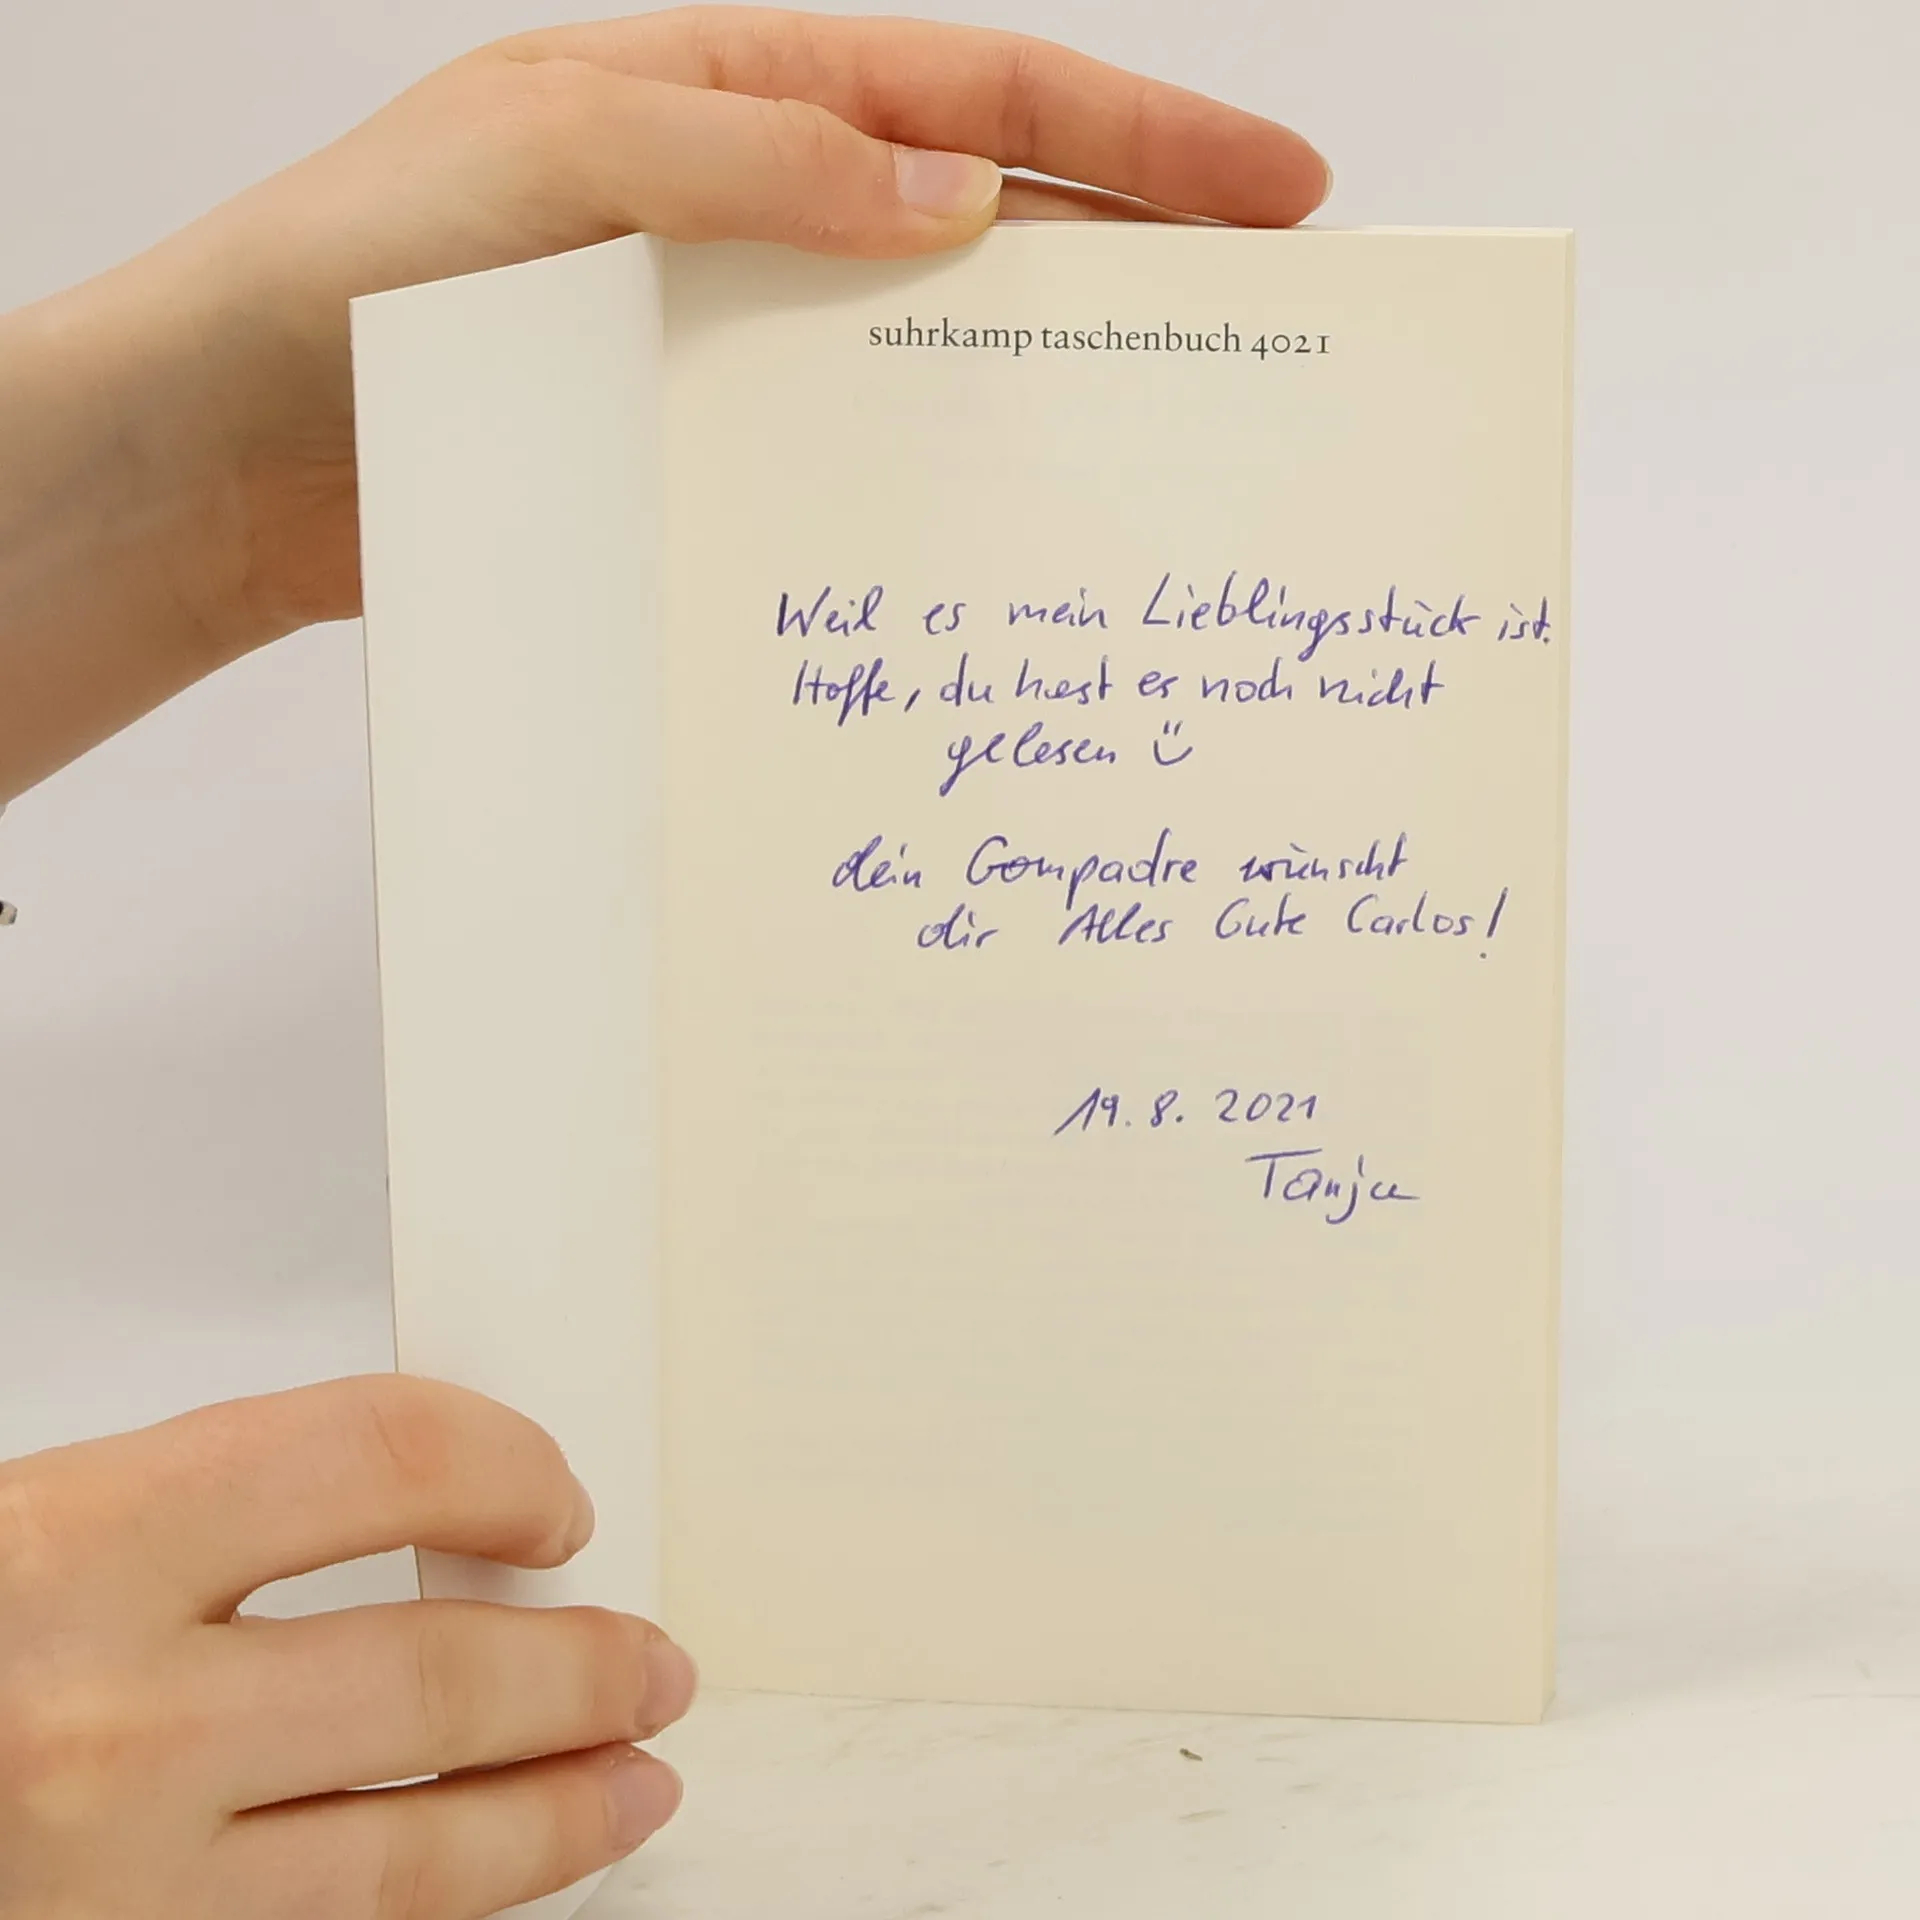 suhrkamp taschenbuch 4021
Weil es mein Lieblingsstück ist.
Hoffe, du hast es noch nicht
gelesen ü
dein Compadre wünscht
dir Alles Gute Carlos!
19. 8. 2021
Tanja